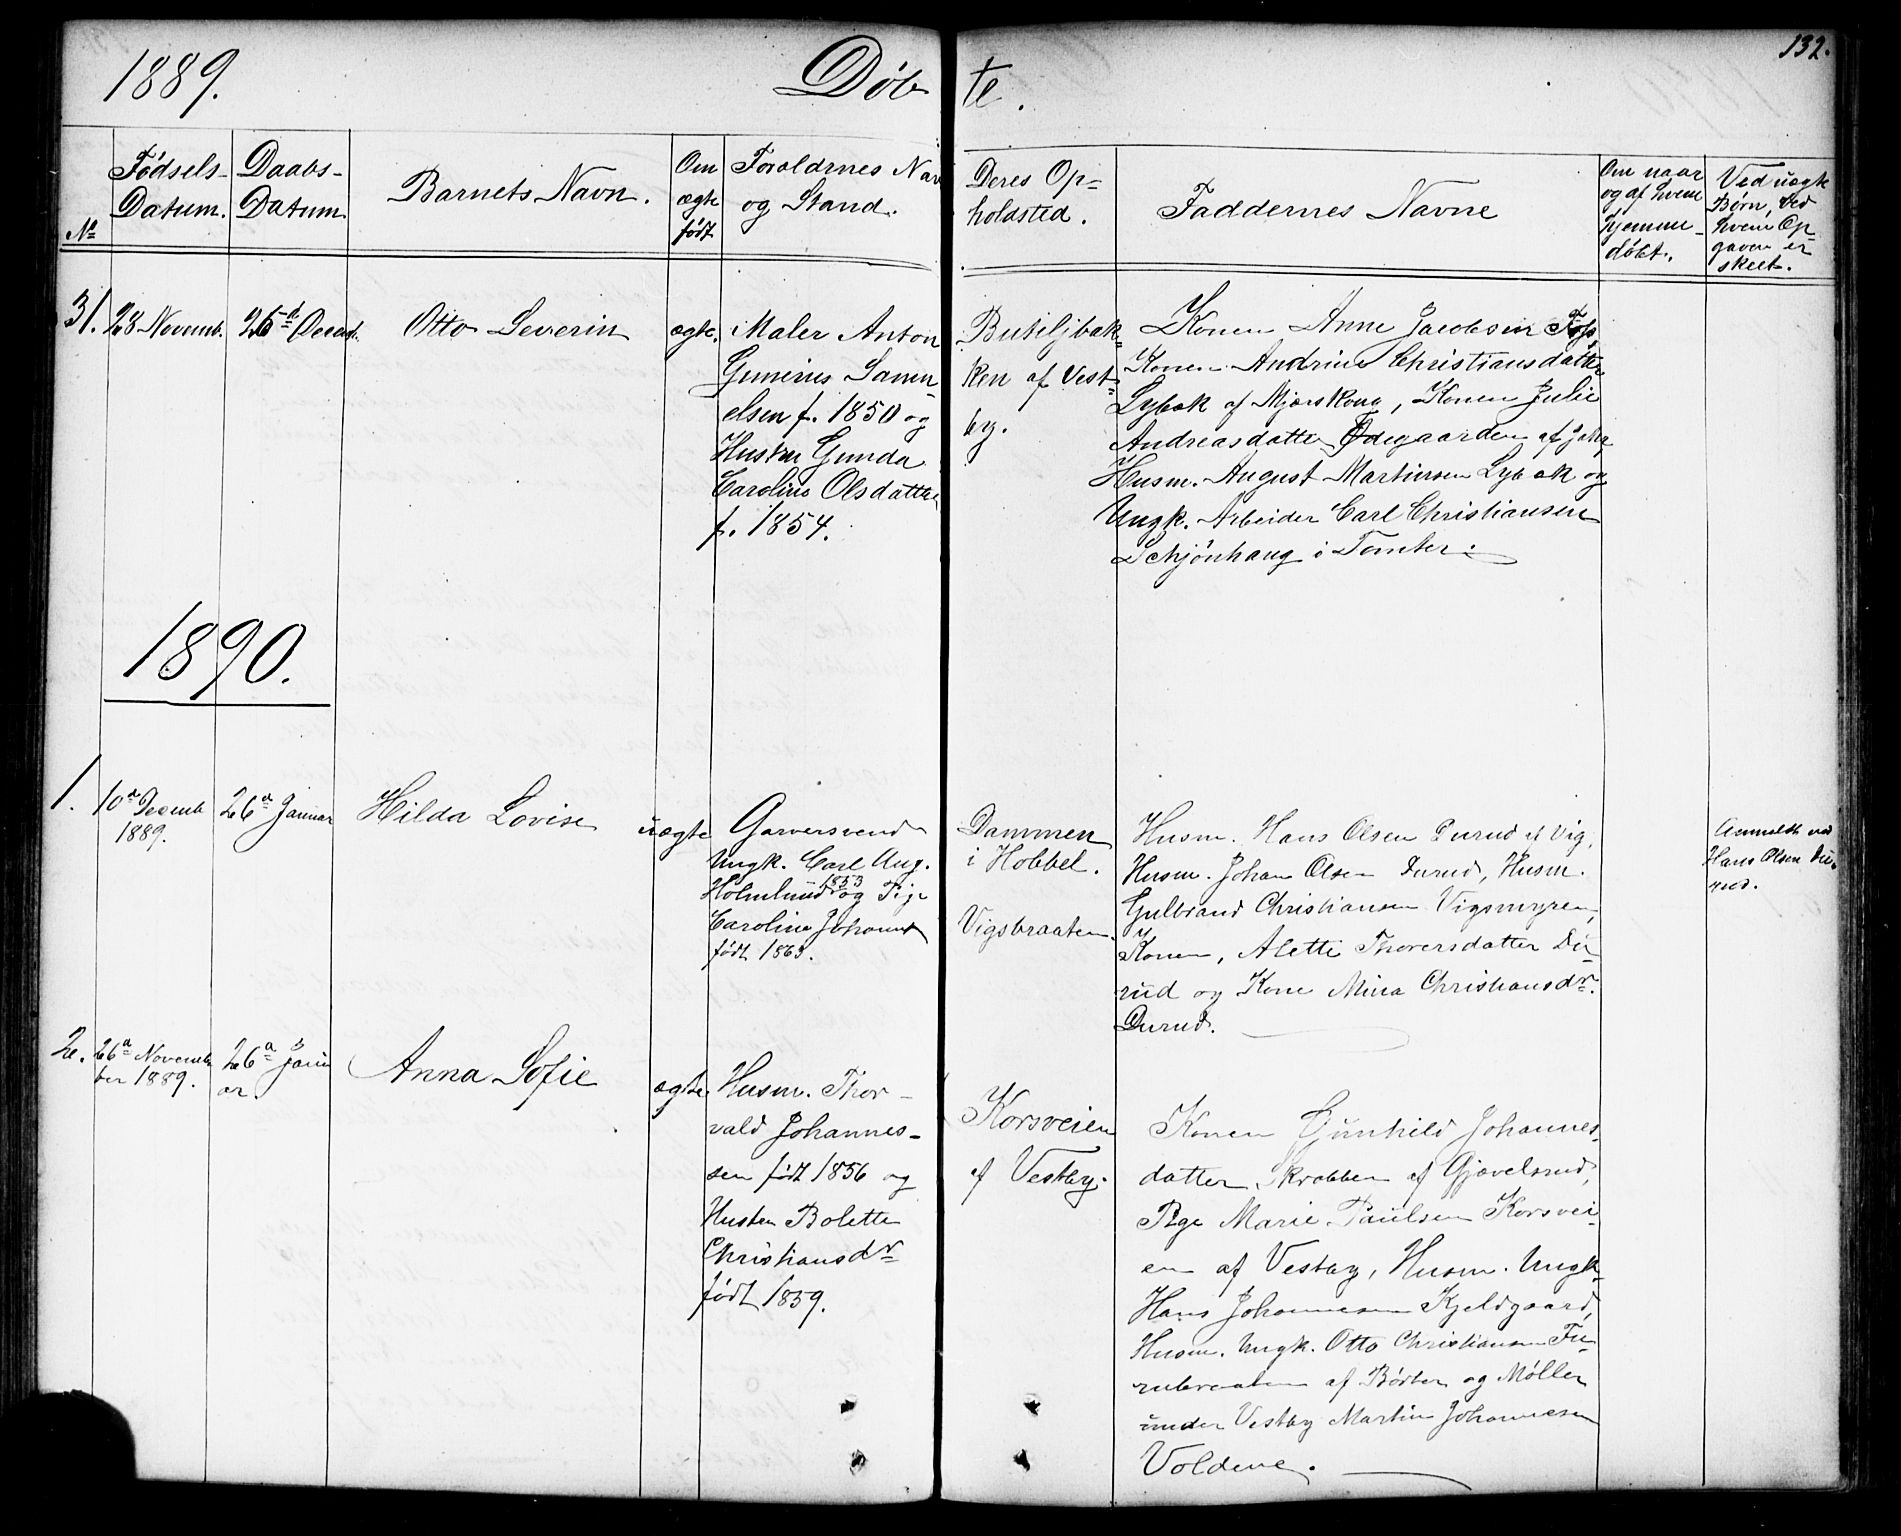 132.
1889. Døbte.
No
Fødsels-
Datum.
Daabs-
Datum
Barnets Navn.
Om
ægte
født
Foraldrenes Nav
og Stand.
Deres Op=
holdsted.
Faddernes Navne
Om naar
og af hvem
hjemme-
døbt.
Ved uægte
Børn, ved
hvem Op
gaven er
skeet.
31. 28 Novemb. 26d Decemb. Otto Severin ægte.
Maler Anton
Gunerius Samu-
elsen f. 1850 og
Hustru Gunda
Caroline Olsdatter
f. 1854.
Busiljbak=
ken af Vest=
by.
Konen Anne Jacobsen Foss,
Konen Andrine Christiansdatter
Lybæk af Mjærskoug, Konen Julie
Andreasdatter Ødegaarden af
Husm. August Martinsen Lybæk og
Ungk. Arbeider Carl Christiansen
Schjönhaug i Tomter.
1890.
1. 10d Decemb. 26d Januar Hilda Lovise uægte
1889.
Garversvend
Ungk. Carl Aug.
Holmlund 1853 og Pige
Caroline Johanns
født 1863.
Dammen
i Hobbel.
Vigsbraaten.
Husm. Hans Olsen Durud af Vig,
Husm. Johan Olsen Durud, Husm.
Gulbrand Christiansen Vigsmyren,
Konen, Alette Thorersdatter Du-
rud og Kone Mina Christiansdr.
Durud.
Anmeldt ved
Hans Olsen Du-
rud.
2. 26d Novem- 26d Janu Anna Sofie ægte
ber 1889. ar.
Husm. Thor-
vald Johannes-
sen født 1856 og
Hustru Bolette
Christiansdr
født 1859.
Korsveien
af Vestby.
Konen Gunhild Johannes-
datter Krabben af Gjævelsrud,
Pige Marie Paulsen Korsvei-
en af Vestby, Husm. Ungk.
Hans Johannesen Kjeldgaard,
Husm. Ungk. Otto Christiansen Fu-
rubraaten af Bødter og Møller
under Vestby Martin Johannesen
Voldene.